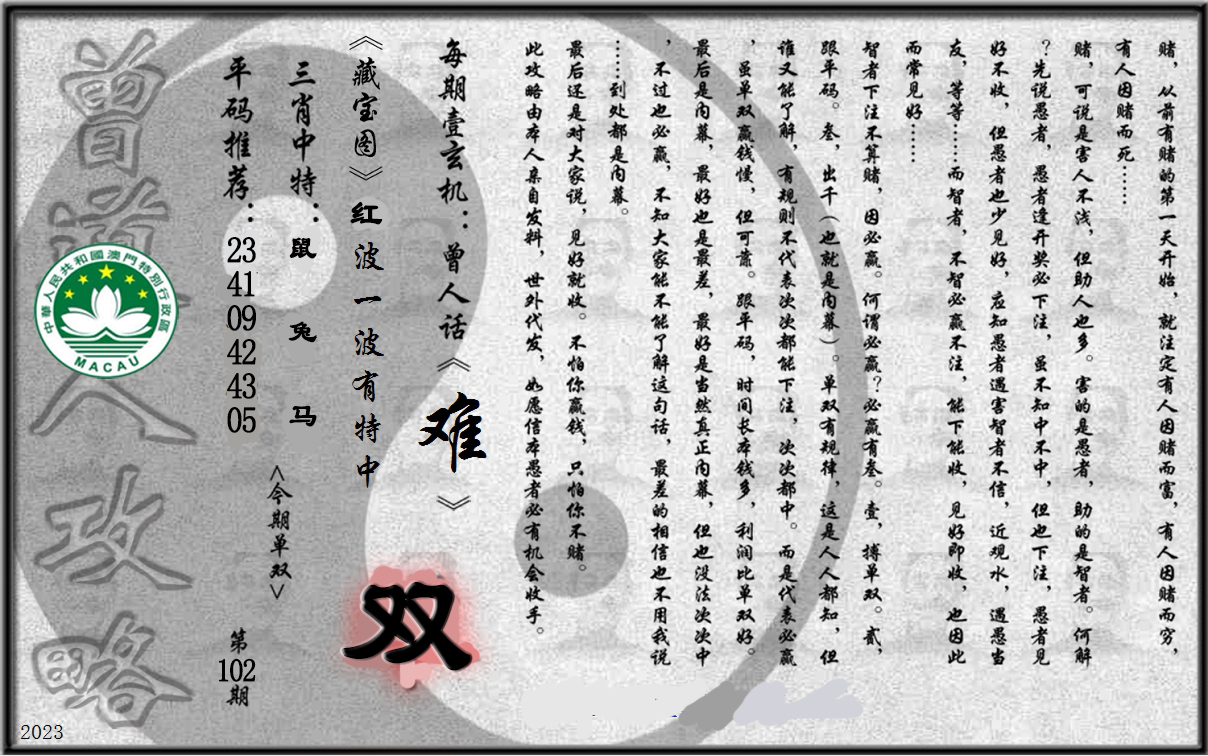 赌，从前有赌的第一天开始，就注定有人因赌而富，有人因赌而穷，
有人因赌而死……
赌，可说是害人不浅，但助人也多。害的是愚者，助的是智者。何解
？先说愚者，愚者逢开奖必下注，虽不知中不中，但也下注，愚者见
好不收，但愚者也少见好，应知愚者遇害智者不信，近观水，遇愚当
友，等等……而智者，不智必赢不注，能下能收，见好即收，也因此
而常见好……
智者下注不算赌，因必赢。何谓必赢？必赢有叁。壹，搏单双。贰，
跟平码。叁，出千（也就是内幕）。单双有规律，这是人人都知，但
谁又能了解，有规则不代表次次都能下注，次次都中。而是代表必赢
，虽单双赢钱慢，但可靠。跟平码，时间长本钱多，利润比单双好。
最后是内幕，最好也是最差，最好是当然真正内幕，但也没法次次中
，不过也必赢，不知大家能不能了解这句话，最差的相信也不用我说
……到处都是内幕。
最后还是对大家说，见好就收。不怕你赢钱，只怕你不赌。
此攻略由本人亲自发料，世外代发，如愿信本愚者必有机会收手。
每期壹玄机：曾人话《难》
《藏宝图》红波一波有特中
双
三肖中特：鼠 兔 马
<今期单双>
平码推荐：23 41 09 42 43 05
第102期
曾道人攻略
中華人民共和國澳門特別行政區
MACAU
2023